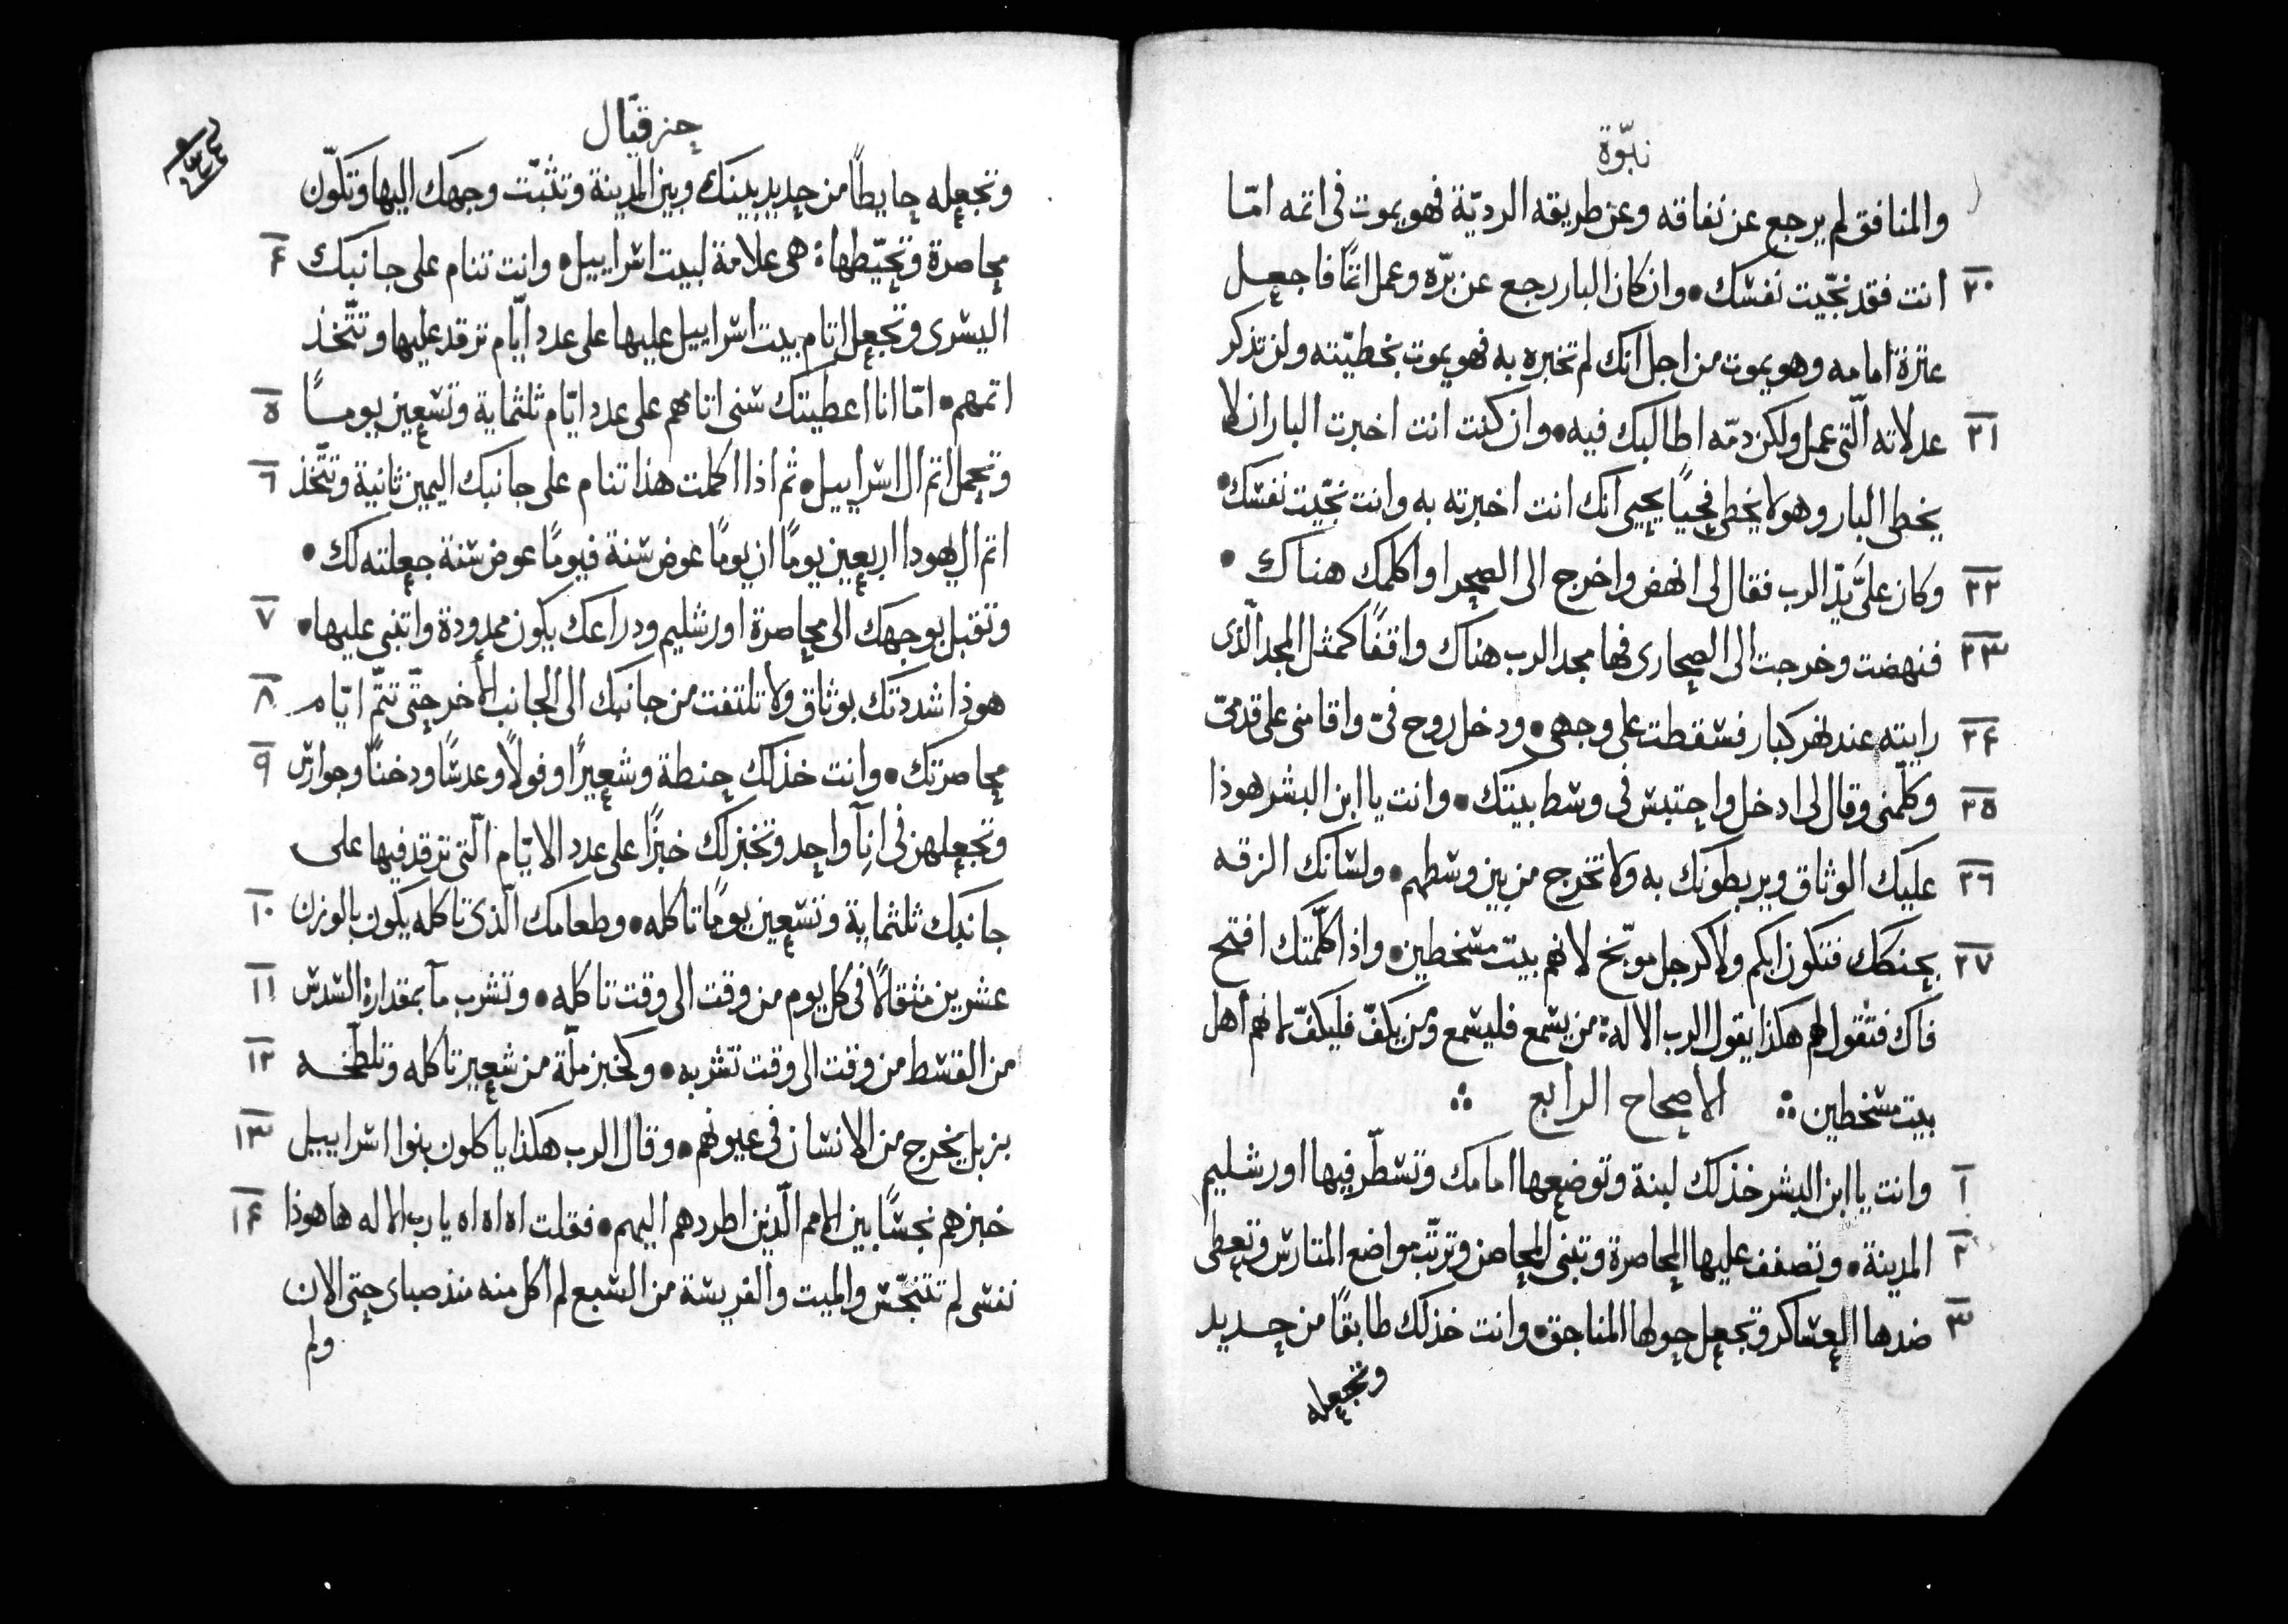 نبوّة
والمنافق لم يرجع عن نفاقه وعن طريقه الرديّة فهو يموت فى اتمه امّا
٢٠ انت فقد نجّيت نفسك • وان كان البار رجع عن برّه وعمل اتمًا فاجعل
عترة امامه وهو يموت من اجل انك لم تخبره به فهو يموت بخطيّته ولن تذكر
٢١ عدلاته الّتى عمل ولكن دمّه اطالبك فيه • وان كنت انت اخبرت البار ان لا
يخطى البار وهو لا يخطى فحيًا يحيى انك انت اخبرته به وانت نجّيت نفسك •
٢٢ وكان علىَّ يدّ الرب فقال لى انهض واخرج الى الصحرا واكلمك هناك •
٢٣ فنهضت وخرجت الى الصحارى فها مجد الرب هناك واقفًا كمثل المجد الّذى
٢۴ رايته عند نهر كبار فسقطت على وجهى • ودخل روح فىّ واقامنى على قدمىّ
٢٥ وكلّمنى وقال لى ادخل واحتبس فى وسط بيتك • وانت يا ابن البشر هوذا
٢٦ عليك الوثاق ويربطونك به ولا تخرج من بين وسطهم • ولسانك الزقه
٢٧ بحنكك فتكون ابكم ولا كرجل موبّخ لانهم بيت مسخطين • واذا كلّمتك افتح
فاك فتقول لهم هكذا يقول الرب الاله : من يسمع فليسمع ومن يكفّ فليكفّ لانهم اهل
بيت مسخطين ∴ الاصحاح الرابع ∴
١ وانت يا ابن البشر خذ لك لبنة وتوضعها امامك وتسطّر فيها اورشليم
٢ المدينة • وتصفف عليها المحاصرة وتبنى المحاصن وترتّب مواضع المتارس وتعطى
٣ ضدها العساكر وتجعل حولها المناجق • وانت خذ لك طابقًا من حديد
وتجعله
حزقيّال
وتجعله حايطًا من حديد بينك وبين المدينة وتثبّت وجهك اليها وتكلّون
۴ محاصرة وتحيّطها : هى علامة لبيت اسراييل • وانت تنام على جانبك
اليسرى وتجعل اتام بيت اسراييل عليها على عدد ايّام ترقد عليها وتتّخذ
٥ اتمهم • امّا انا اعطيتك سنى اتامهم على عدد ايّام ثلثماية وتسعين يومًا
٦ وتحمل اتم ال اسراييل • ثم اذا اكملت هذا تنام على جانبك اليمين ثانية وتتّخذ
اتم ال يهودا اربعين يومًا ان يومًا عوض سنة فيومًا عوض سنة جعلته لك •
٧ وتقبل بوجهك الى محاصرة اورشليم ودراعك يكون ممدودة واتنبى عليها •
٨ هوذا شددتك بوثاق ولا تلتفت من جانبك الى الجانب الأخر حتّى تتمّ ايّام
٩ محاصرتك • وانت خذ لك حنطة وشعيرًا وفولاً وعدسًا ودخنًا وجوارس
وتجعلهن فى انآ واحد وتخبز لك خبزًا على عدد الايّام الّتى ترقد فيها على
١٠ جانبك ثلثماية وتسعين يومًا تاكله • وطعامك الّذى تاكله يكون بالوزن
١١ عشرين مثقالاً فى كل يوم من وقت الى وقت تاكله • وتشرب مآ بمقدارة السدس
١٢ من القسط من وقت الى وقت تشربه • وكخبز ملّة من شعير تاكله وتلطّخه
١٣ بزبل يخرج من الانسان فى عيونهم • وقال الرب هكذا ياكلون بنوا اسراييل
١۴ خبزهم نجسًا بين الامم الّذين اطردهم اليهم • فقلت اه اه اه يا رب الاله ها هوذا
نفسى لم تتنجّس والميت والفريسة من السبع لم اكل منه منذ صباى حتى الان
ولم